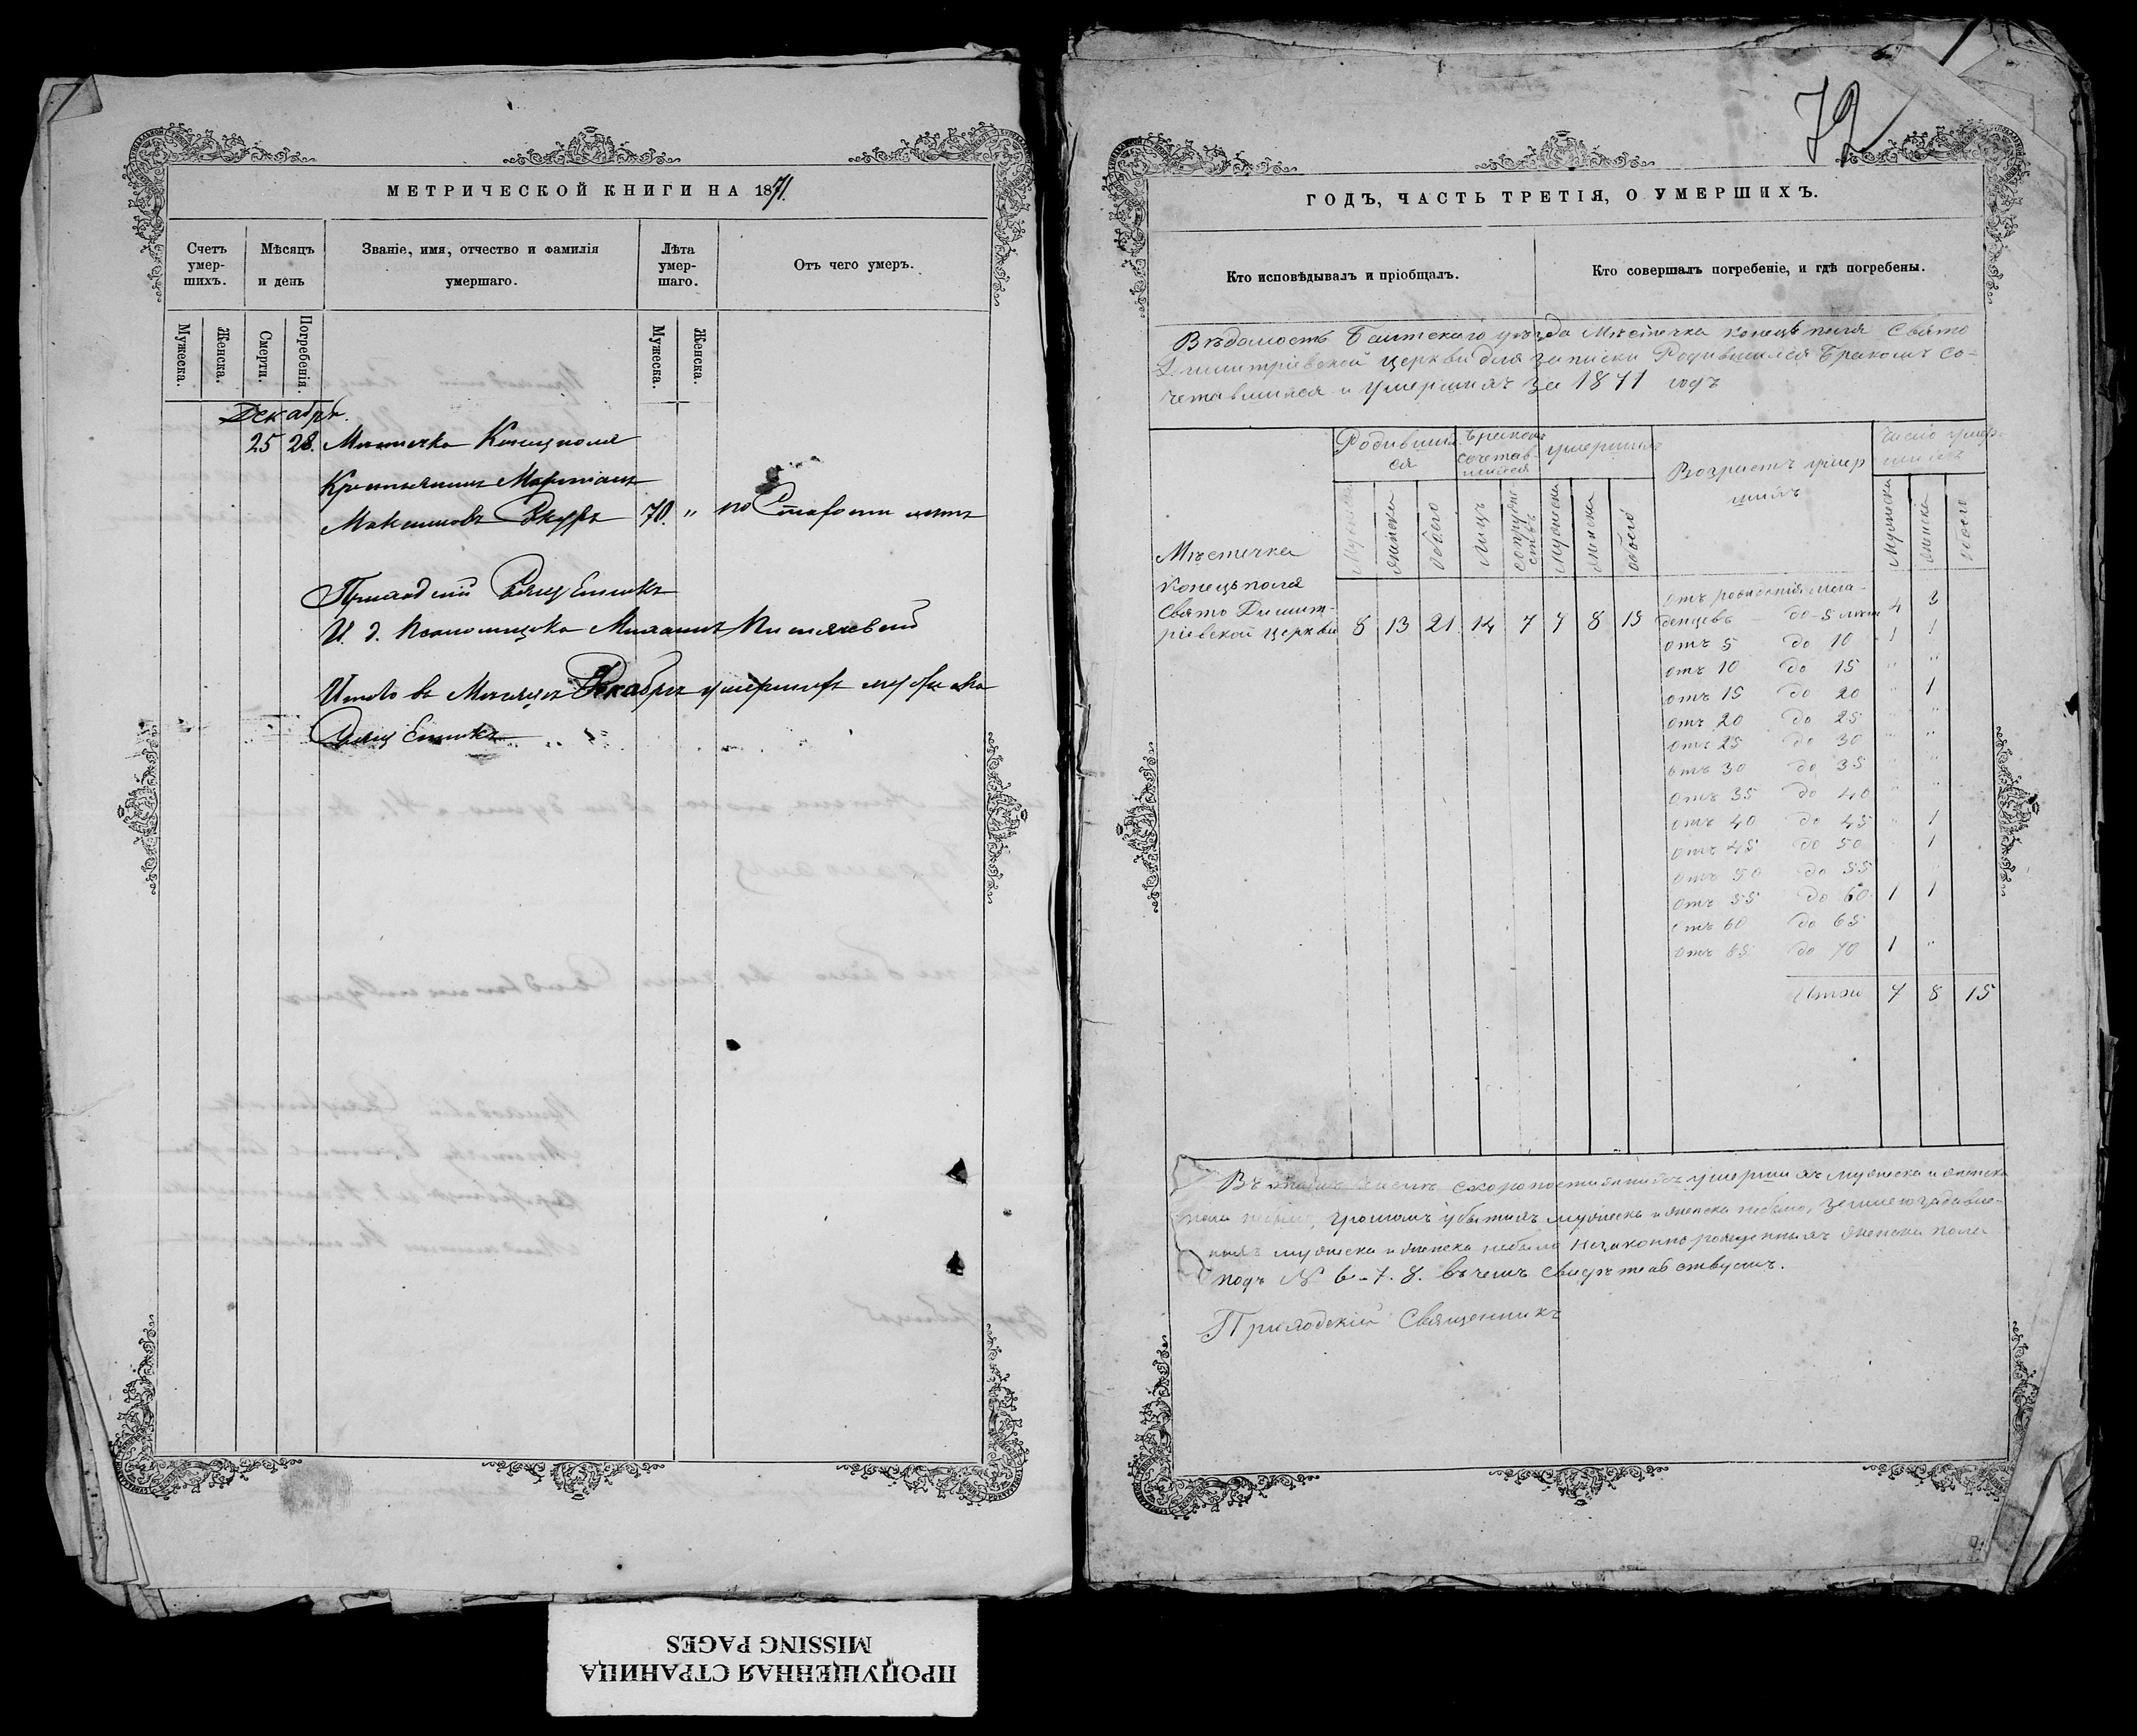 МЕТРИЧЕСКОЙ КНИГИ НА 1871.
Счетъ умер-шихъ.
Мѣсяцъ и день
Званіе, имя, отчество и фамилія умершаго.
Лѣта умер-шаго.
Отъ чего умеръ.
Мужеска.
Женска.
Смерти.
Погребенія.
Мужеска.
Женска.
Декабрь.
25 28. Мѣстечка Конецполя
Крестьянинъ
Максимовъ 70. " по Старости лѣтъ
Приходскій Священникъ
И. д. Псаломщика Михаилъ
Итого въ Мѣсяцѣ Декабрѣ умершихъ мужеска
Священникъ
72
ГОДЪ, ЧАСТЬ ТРЕТІЯ, О УМЕРШИХЪ.
Кто исповѣдывалъ и пріобщалъ.
Кто совершалъ погребеніе, и гдѣ погребены.
Вѣдомость Балтскаго уѣзда Мѣстечка Конецъполя Свято
Димитріевской церкви для записки Родившихся Бракомъ со-
четавшихся и умершихъ за 1871 годъ
Родивших
ся
Бракомъ
сочетав-
шихся
умершихъ
Возрастъ умер
шихъ
Число умер-
шихъ
Мужеска
женска
обоего
лицъ
супруже-
ствъ
мужеска
женска
обоего
Мужеска
женска
обоего
Мѣстечка
Конецъполя
Свято Димит-
ріевской церкви
8 13 21 14 7 7 8 15
отъ рожденія мла-
денцевъ до 5 лѣтъ 4 3
отъ 5 до 10 1 1
отъ 10 до 15 " "
отъ 15 до 20 " 1
отъ 20 до 25 " "
отъ 25 до 30 " "
отъ 30 до 35 " "
отъ 35 до 40 " "
отъ 40 до 45 " 1
отъ 45 до 50 " 1
отъ 50 до 55
отъ 55 до 60 1 1
отъ 60 до 65
отъ 65 до 70 1 "
Итого 7 8 15
Въ числѣ скоропостижно умершихъ мужеска и женска
пола небыло, громомъ убитыхъ мужеска и женска небыло, землею задавле-
ныхъ мужеска и женска небыло незаконнорожденныхъ женска пола
подъ № 6-7. 8. въ чемъ свидѣтельствуемъ.
Приходскій Священникъ
ПРОПУЩЕННАЯ СТРАНИЦА
MISSING PAGES